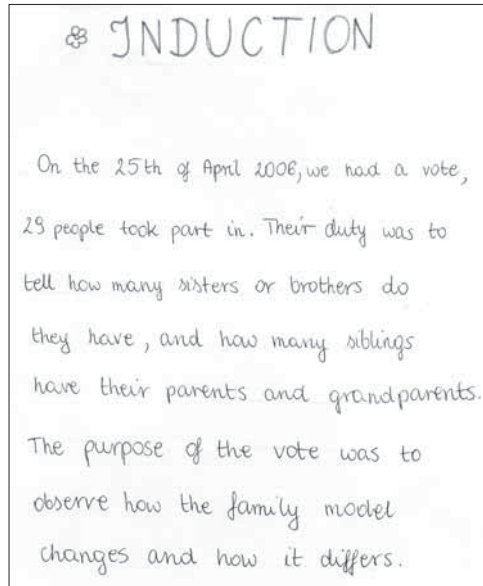 INDUCTION
On the 25th of April 2006, we had a vote,
29 people took part in. Their duty was to
tell how many sisters or brothers do
they have, and how many siblings
have their parents and grandparents.
The purpose of the vote was to
observe how the family model
changes and how it differs.